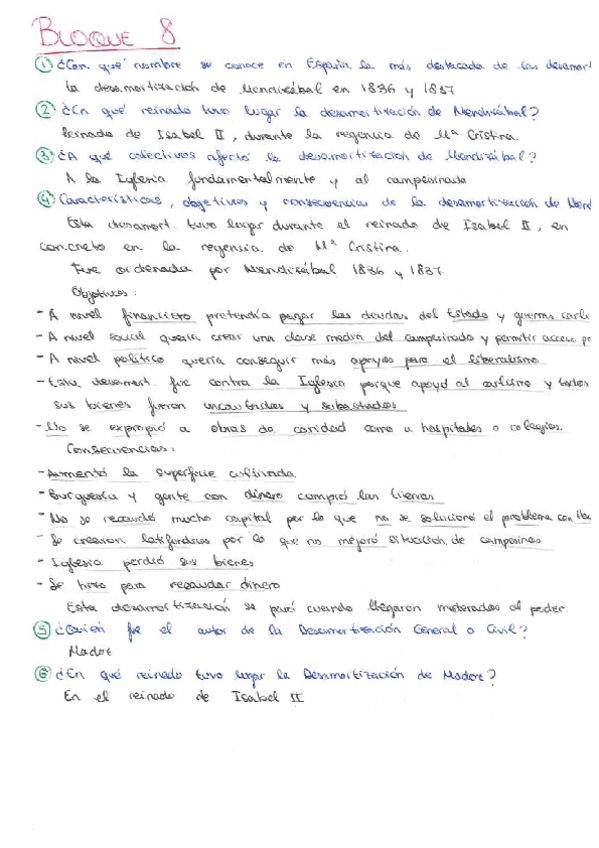 BLOQUE 8
① ¿Con qué nombre se conoce en España la más destacada de las desamort
La desamortización de Mendizábal en 1836 y 1837
② ¿En qué reinado tuvo lugar la desamortización de Mendizábal?
Reinado de Isabel II, durante la regencia de Mª Cristina.
③ ¿A qué colectivos afectó la desamortización de Mendizábal?
A la Iglesia fundamentalmente y al campesinado
④ Características, objetivos y consecuencias de la desamortización de Mend
Esta desamort. tuvo lugar durante el reinado de Isabel II, en
concreto en la regencia de Mª Cristina.
Fue ordenada por Mendizábal 1836 y 1837.
Objetivos:
- A nivel financiero pretendía pagar las deudas del Estado y guerra carli
- A nivel social quería crear una clase media del campesinado y permitir acceso pr
- A nivel político quería conseguir más apoyos para el liberalismo.
- Esta desamort. fue contra la Iglesia porque apoyó al carlismo y todos
sus bienes fueron incautados y subastados
- No se expropió a obras de caridad como a hospitales o colegios.
Consecuencias:
- Aumentó la superficie cultivada.
- Burguesía y gente con dinero compró las tierras
- No se recaudó mucho capital por lo que no se solucionó el problema con Hac
- Se crearon latifundios por lo que no mejoró situación de campesinos
- Iglesia perdió sus bienes
- Se hizo para recaudar dinero
Esta desamortización se paró cuando llegaron moderados al poder.
⑤ ¿Quién fue el autor de la Desamortización General o Civil?
Madoz
⑥ ¿En qué reinado tuvo lugar la Desamortización de Madoz?
En el reinado de Isabel II